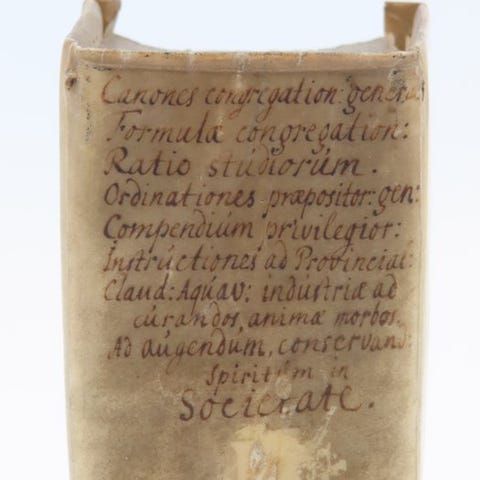 Canones congregation: generas
Formulæ congregation:
Ratio stúdiorúm.
Ordinationes præpositor: gen:
Compendiúm privilegior:
Instrúctiones ad Provincial:
Claud: Aquav: industriæ ad
cúrandos, animæ morbos.
Ad augendum, conservand:
Spiritúm in
Societate.